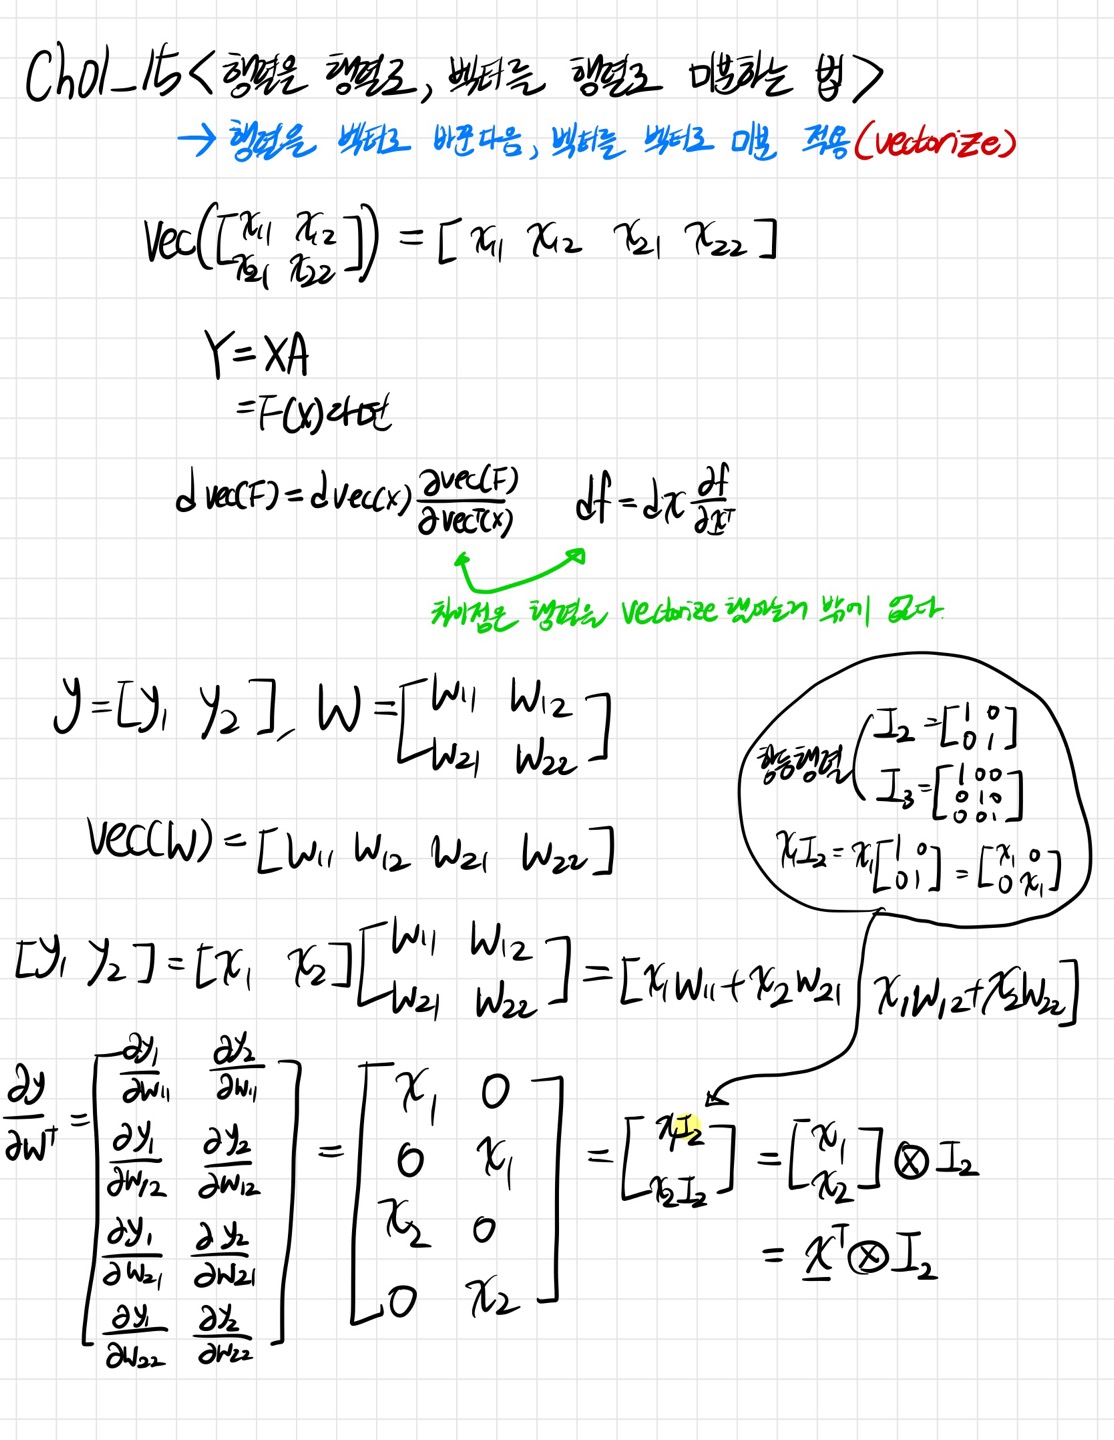 Ch01_15<행렬을 행렬로, 벡터를 행렬로 미분하는 법>
→ 행렬을 벡터로 바꾼다음, 벡터를 벡터로 미분 적용(vectorize)
vec([x₁₁ x₁₂
x₂₁ x₂₂]) = [x₁₁ x₁₂ x₂₁ x₂₂]
Y=XA
=F(X)라면
d vec(F) = d vec(x) ∂vec(F)/∂vecᵀ(x) df = dx ∂f/∂xᵀ
차이점은 행렬을 vectorize 했다는거 밖에 없다.
y=[y₁ y₂], W=[w₁₁ w₁₂
w₂₁ w₂₂]
항등행렬 I₂=[1 0
0 1]
I₃=[1 0 0
0 1 0
0 0 1]
x₁I₂ = x₁[1 0
0 1] = [x₁ 0
0 x₁]
vec(W) = [w₁₁ w₁₂ w₂₁ w₂₂]
[y₁ y₂] = [x₁ x₂][w₁₁ w₁₂
w₂₁ w₂₂] = [x₁w₁₁+x₂w₂₁ x₁w₁₂+x₂w₂₂]
∂y/∂wᵀ = [∂y₁/∂w₁₁ ∂y₂/∂w₁₁
∂y₁/∂w₁₂ ∂y₂/∂w₁₂
∂y₁/∂w₂₁ ∂y₂/∂w₂₁
∂y₁/∂w₂₂ ∂y₂/∂w₂₂]
= [x₁ 0
0 x₁
x₂ 0
0 x₂]
= [x₁I₂
x₂I₂]
= [x₁
x₂] ⊗ I₂
= xᵀ⊗I₂